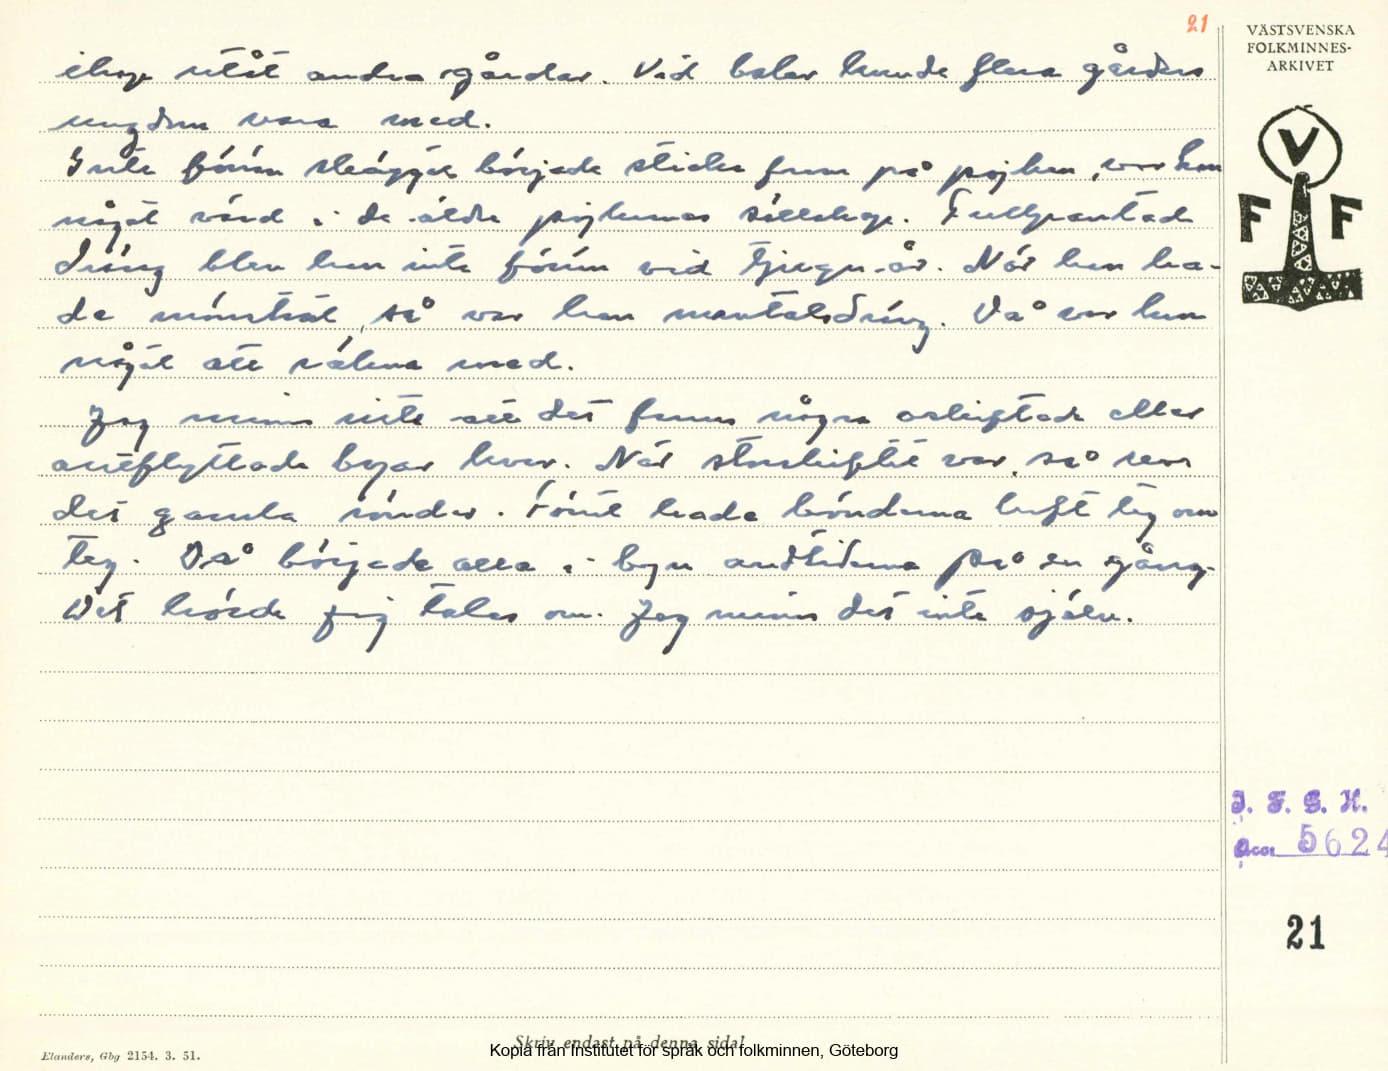 21
VÄSTSVENSKA
FOLKMINNES-
ARKIVET
V
F F
ihop utåt andra gårdar. Vid balar kunde flera gårders
ungdom vara med.
Inte förrn skägget började sticka fram på pojken, var han
något värd i de äldre pojkarnas sällskap. Fullgantad
dräng blev han inte förrn vid tjugu-år. När han ha-
de mönstrat, så var han mantalsdräng. Då var han
något att räkna med.
Jag minns inte att det fanns några oskiftade eller
outflyttade byar kvar. När storskiftet var, så revs
det gamla sönder. Förut hade bönderna haft teg om
teg. Då började alla i byn andtiderna på en gång.
Det hörde jag talas om. Jag minns det inte själv.
I. F. G. H.
acc. 5624
21
Elanders, Gbg 2154. 3. 51.
Skriv endast på denna sida!
Kopia från Institutet för språk och folkminnen, Göteborg